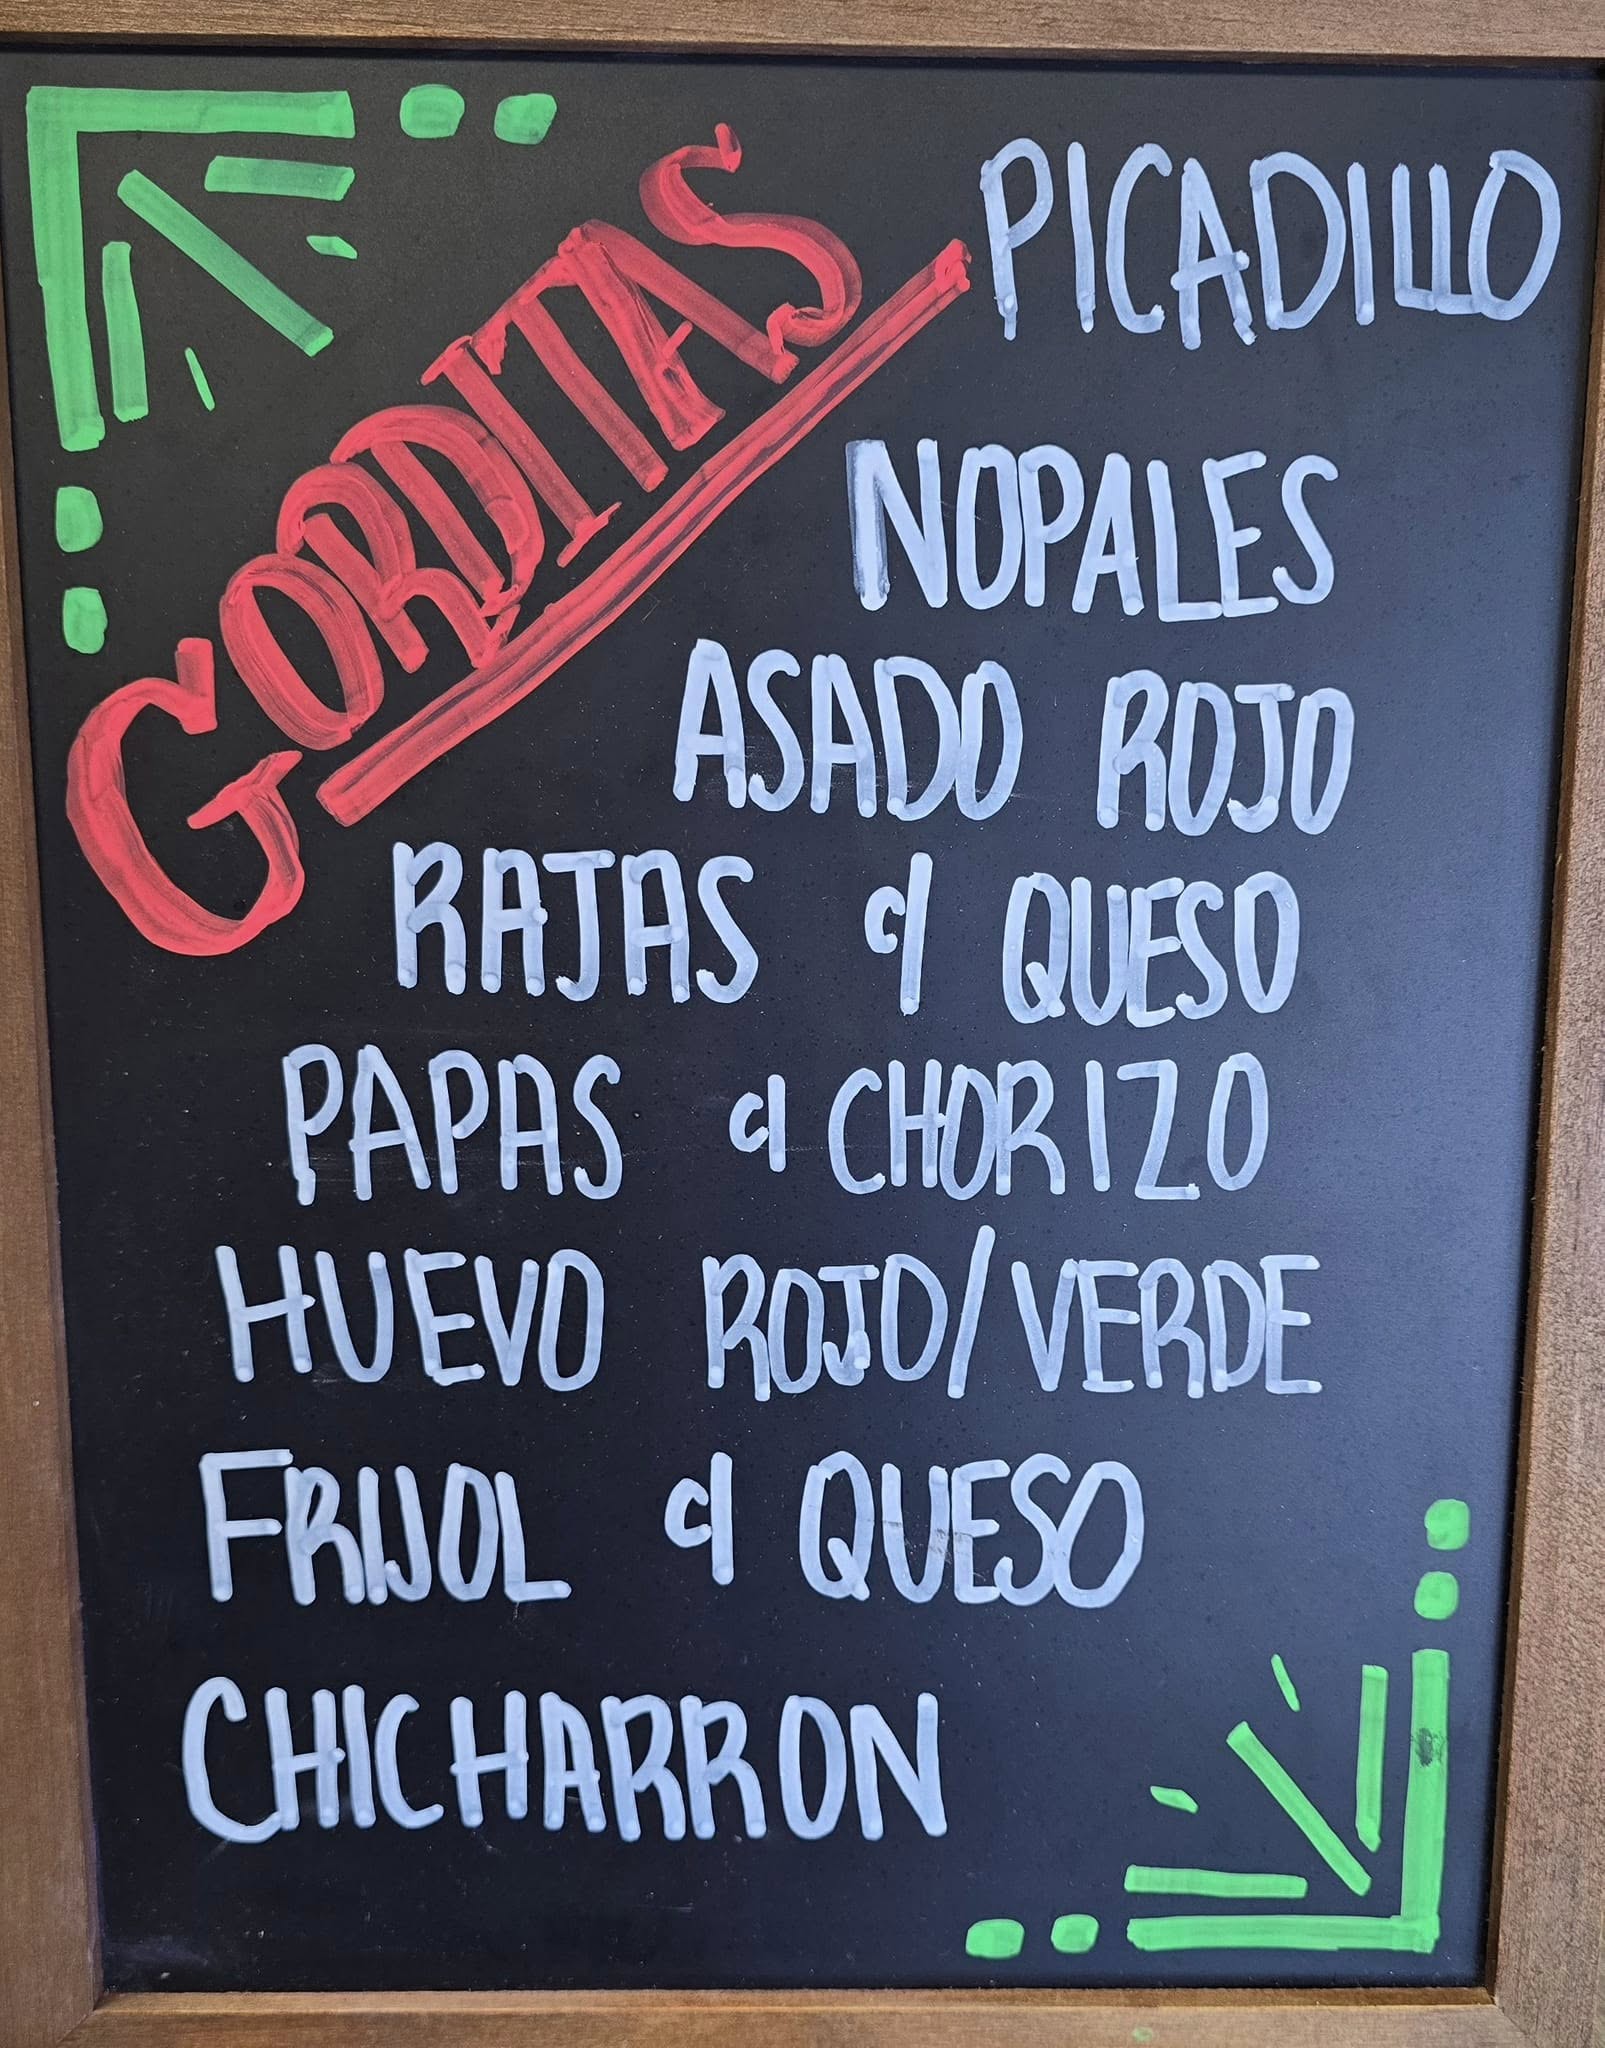 GORDITAS
PICADILLO
NOPALES
ASADO ROJO
RAJAS c/ QUESO
PAPAS c/ CHORIZO
HUEVO ROJO/VERDE
FRIJOL c/ QUESO
CHICHARRON